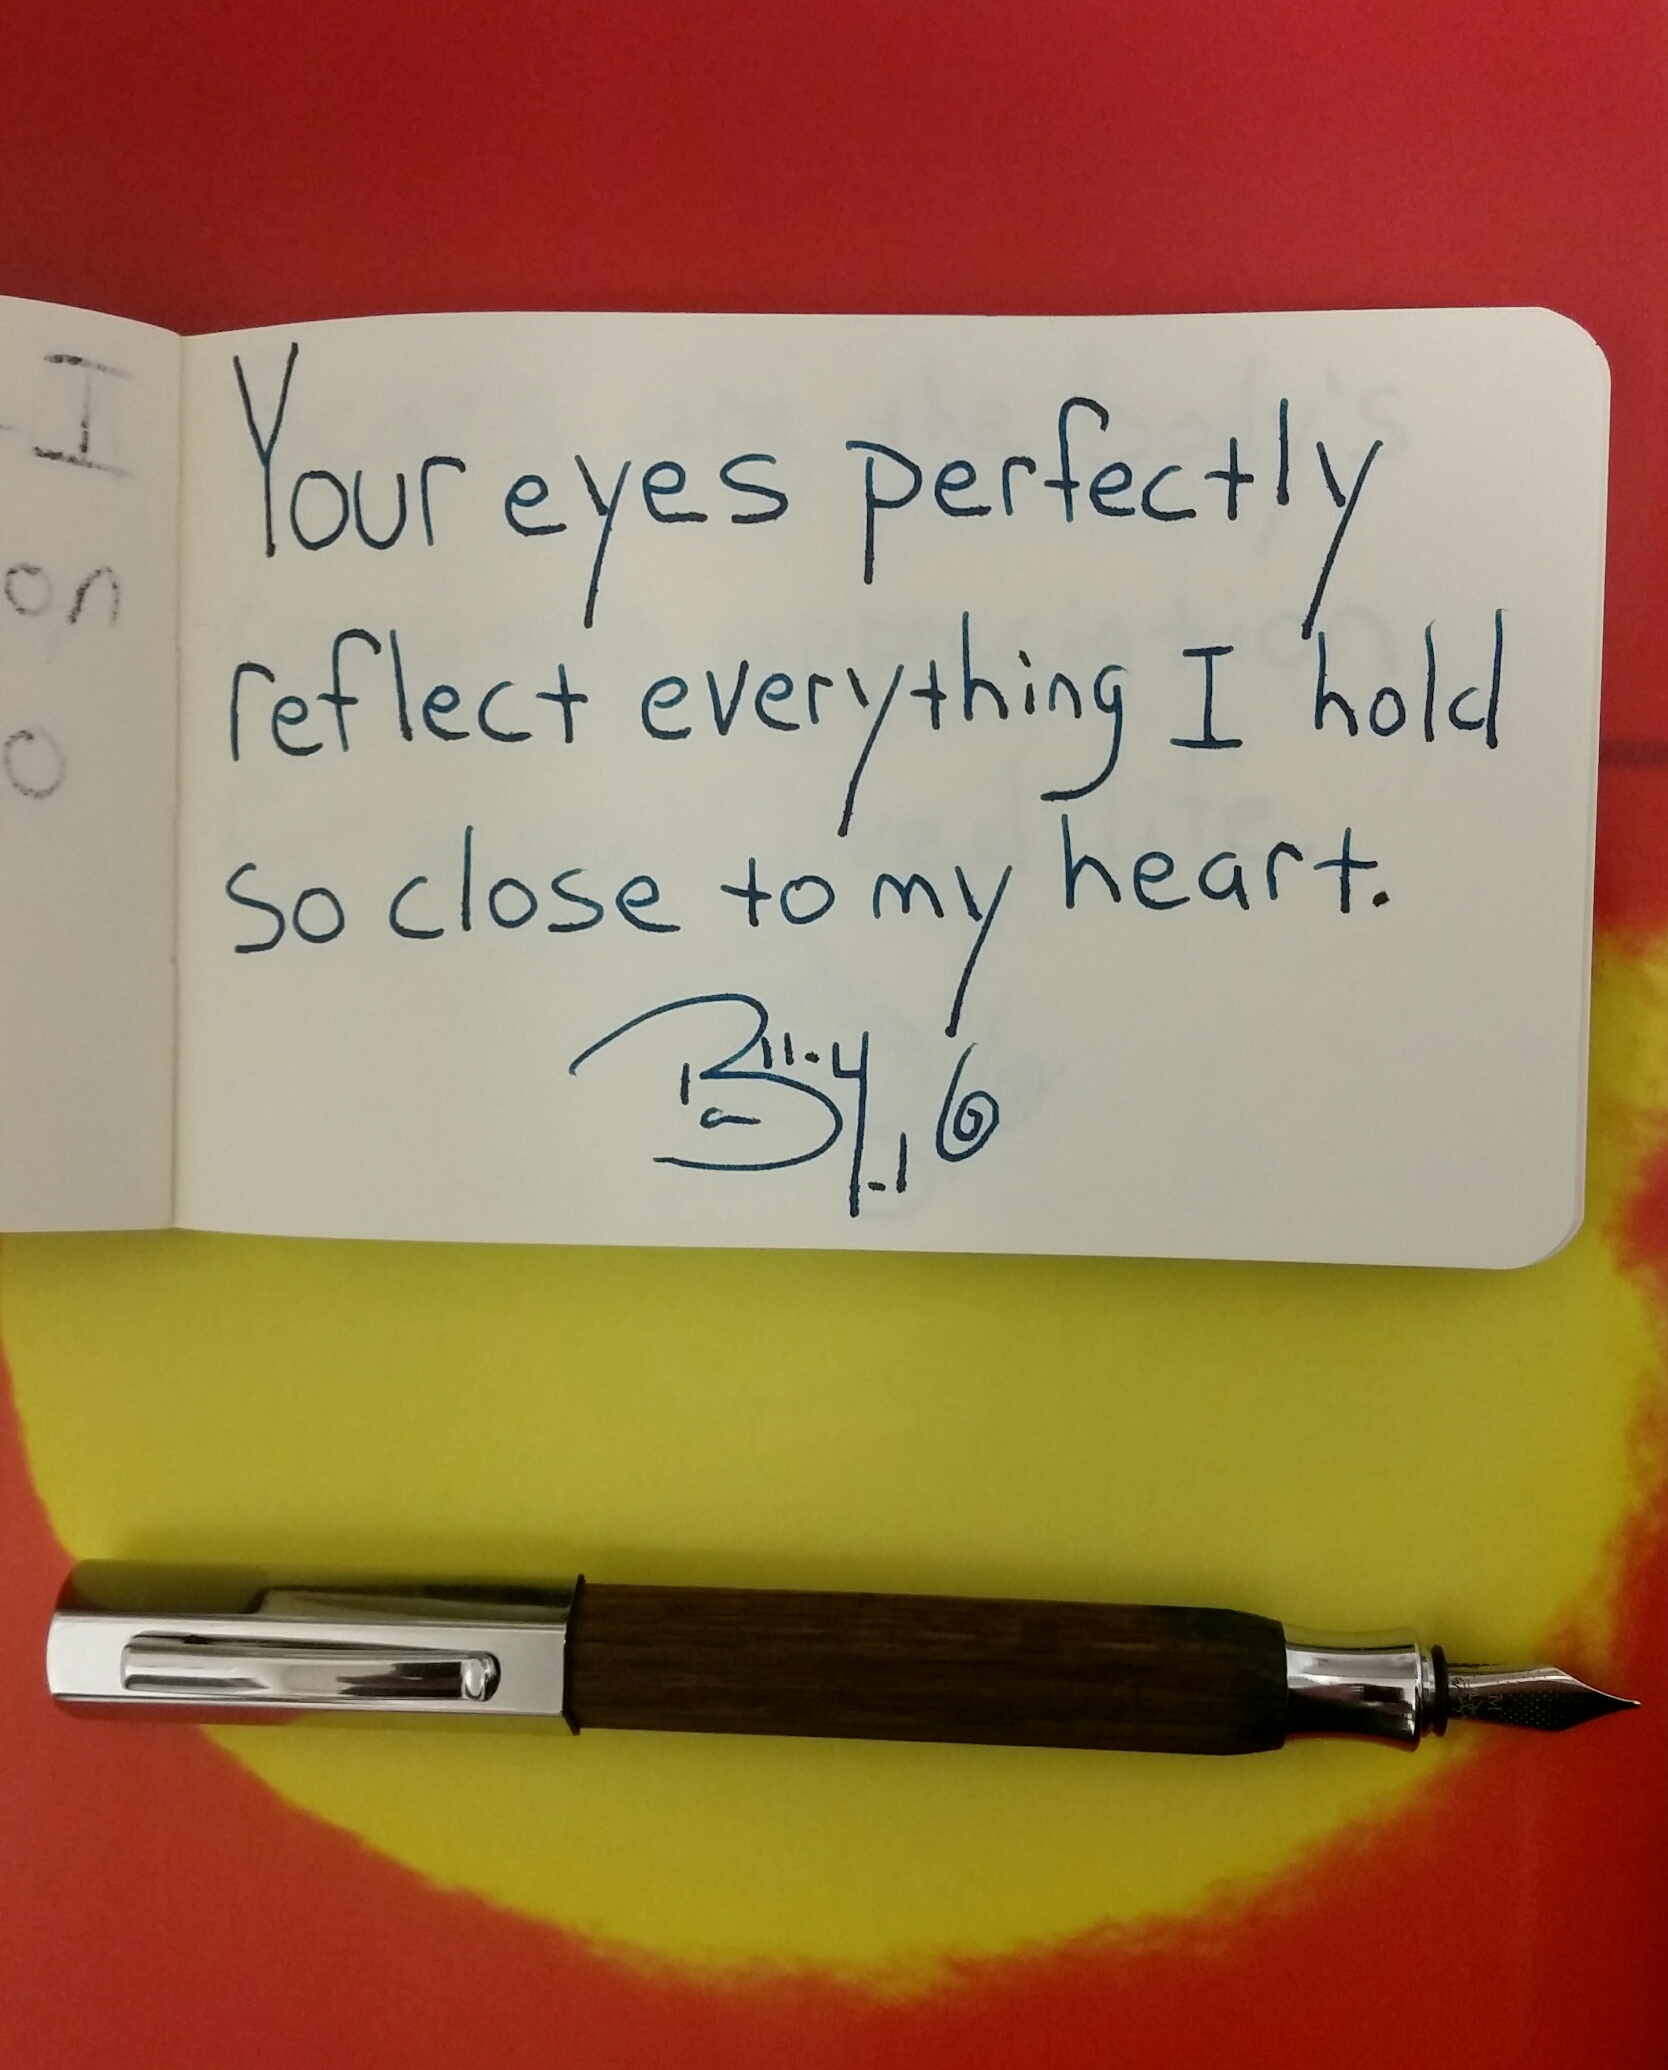 I
on
o
Your eyes perfectly
reflect everything I hold
so close to my heart.